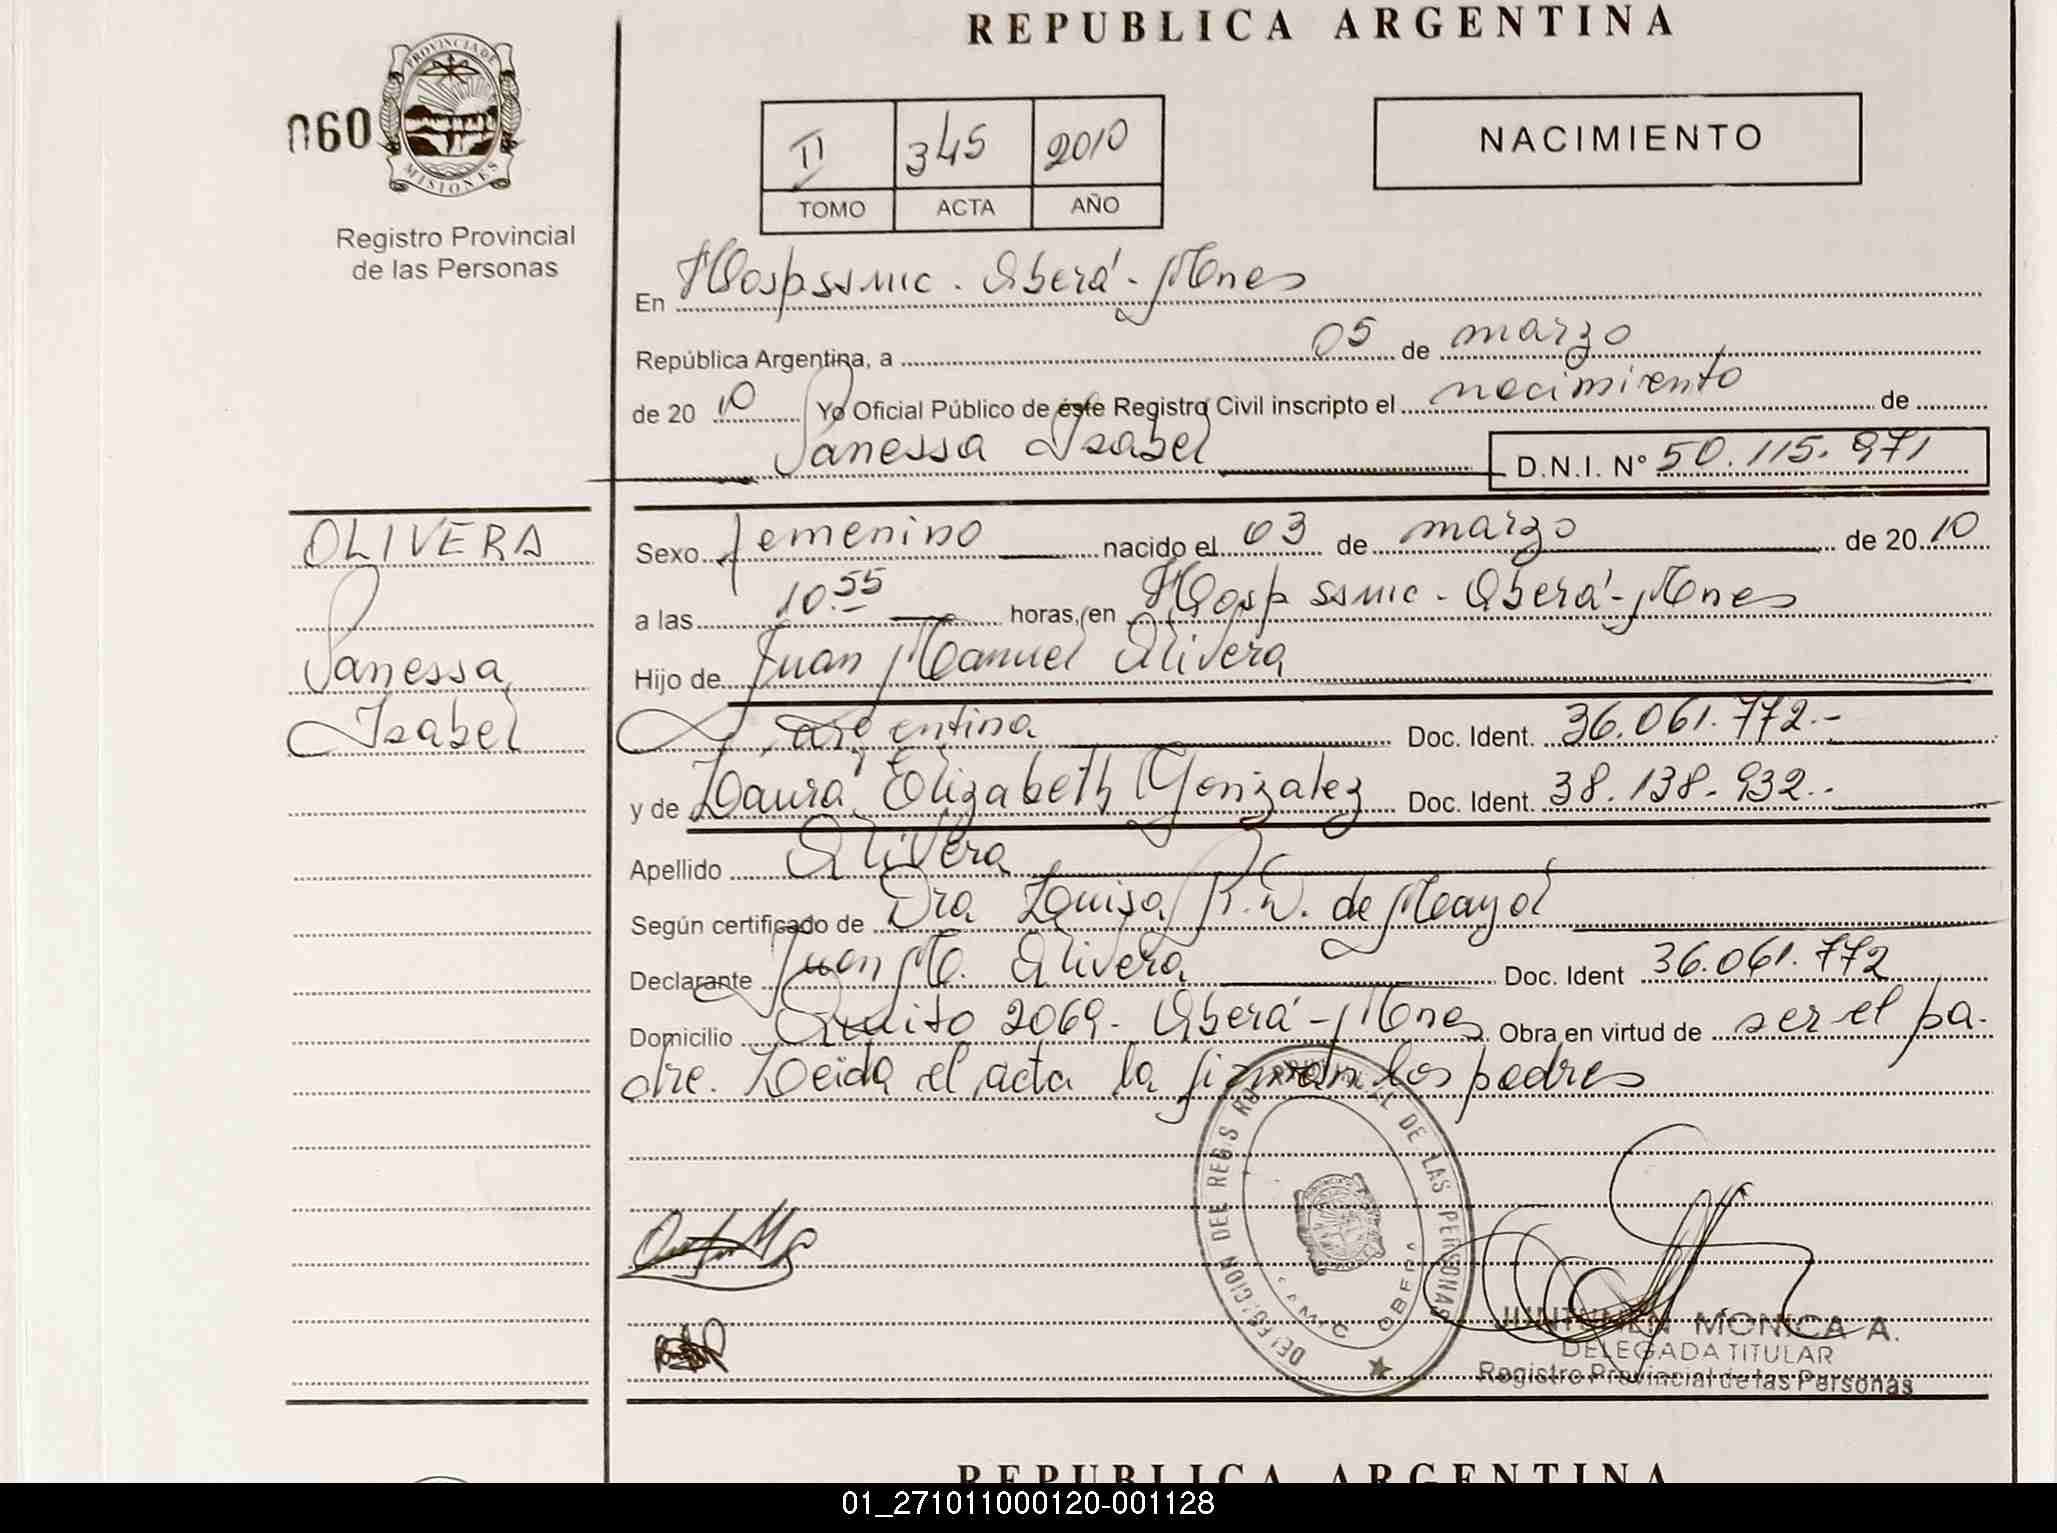 REPUBLICA ARGENTINA
060
PROVINCIA DE
MISIONES
Registro Provincial
de las Personas
II 345 2010
TOMO ACTA AÑO
NACIMIENTO
En Hosp ssmic - Oberá - Mnes
República Argentina, a 05 de marzo
de 2010 Yo Oficial Público de éste Registro Civil inscripto el nacimiento de
Vanessa Isabel D.N.I. N° 50.115.971
OLIVERA
Vanessa
Isabel
Sexo femenino nacido el 03 de marzo de 2010
a las 10.55 horas, en Hosp ssmic - Oberá - Mnes
Hijo de Juan Manuel Olivera
Argentina Doc. Ident. 36.061.772.-
y de Laura Elizabeth Gonzalez Doc. Ident. 38.138.932.-
Apellido Olivera
Según certificado de Dra Luisa R.D. de Mayol
Declarante Juan M. Olivera Doc. Ident 36.061.772
Domicilio Quito 2069 - Oberá - Mnes Obra en virtud de ser el pa-
dre. Leida el acta la firman los padres
DELEGACION DEL REGIS PROVINCIAL DE LAS PERSONAS
OBERA
MONICA A.
DELEGADA TITULAR
Registro Provincial de las Personas
REPUBLICA ARGENTINA
01_271011000120-001128